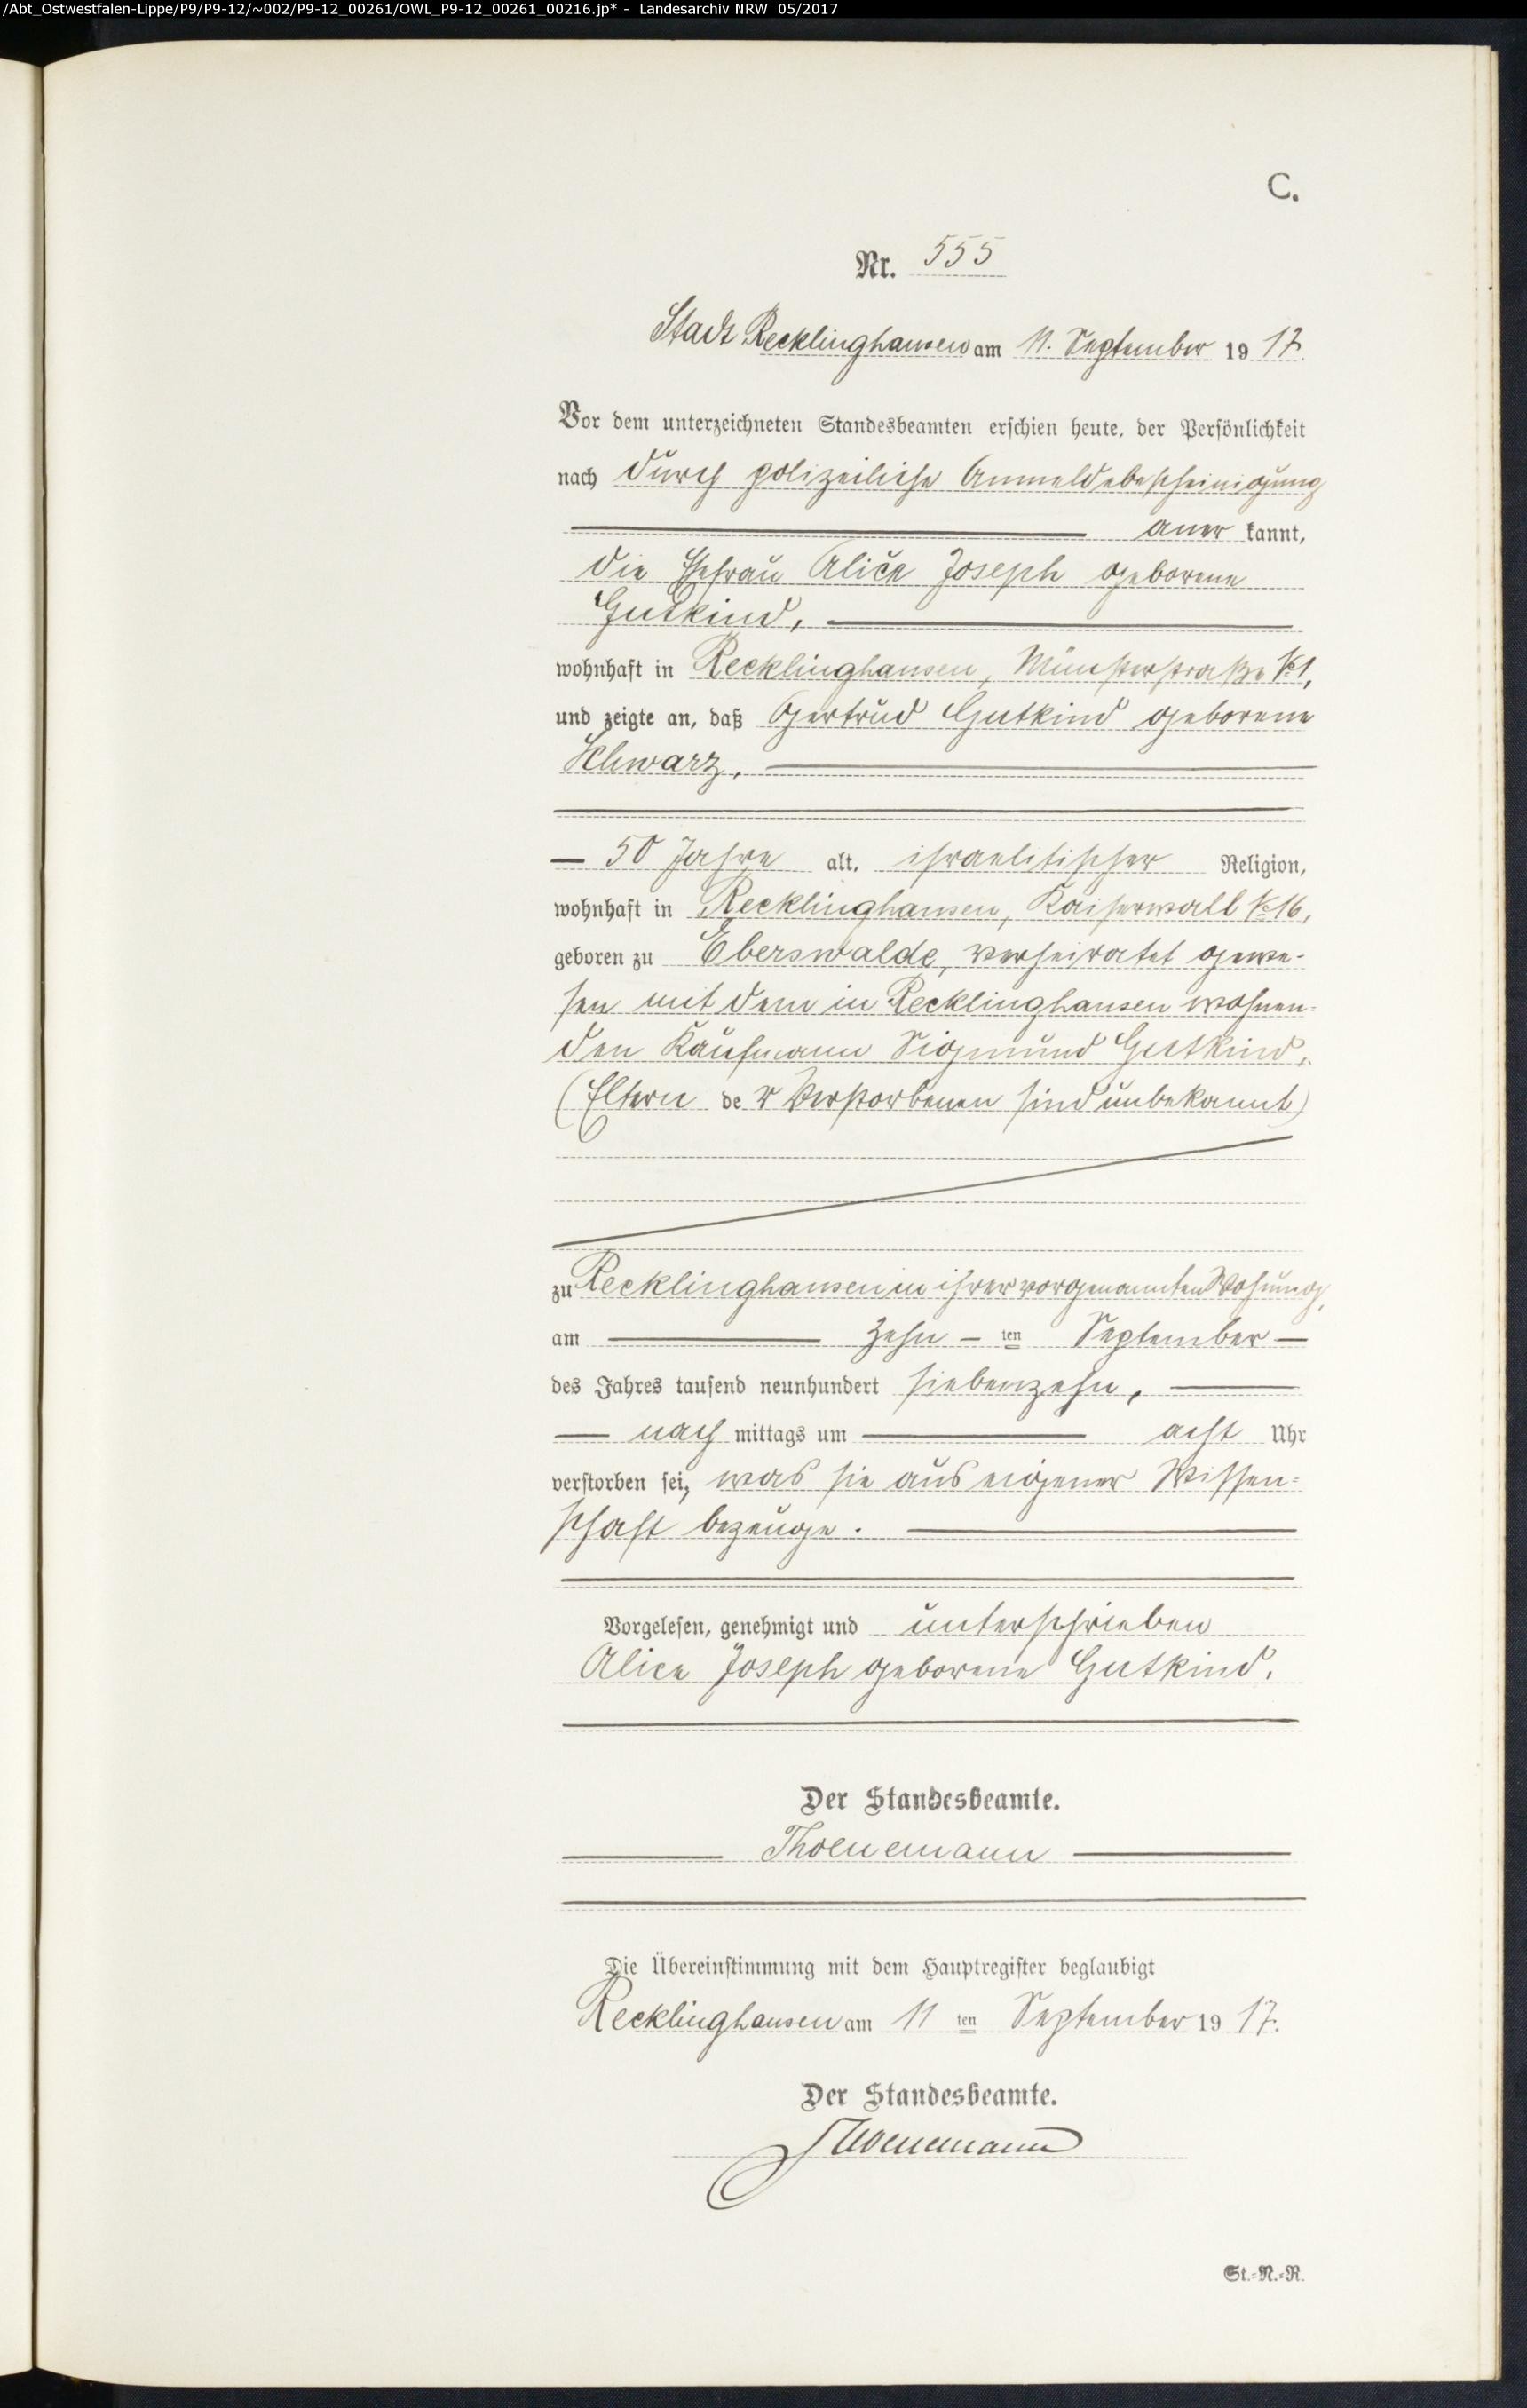 /Abt_Ostwestfalen-Lippe/P9/P9-12/~002/P9-12_00261/OWL_P9-12_00261_00216.jp* - Landesarchiv NRW 05/2017
C.
Nr. 555
Stadt Recklinghausen am 11. September 1917.
Vor dem unterzeichneten Standesbeamten erschien heute, der Persönlichkeit
nach durch polizeiliche Anmeldebescheinigung
aner kannt,
die Ehefrau Alice Joseph geborene
Gutkind,
wohnhaft in Recklinghausen, Münsterstraße № 1,
und zeigte an, daß Gertrud Gutkind geborene
Schwarz,
50 Jahre alt, israelitischer Religion,
wohnhaft in Recklinghausen, Kaiserwall № 16,
geboren zu Eberswalde, verheiratet gewe-
sen mit dem in Recklinghausen wohnen-
den Kaufmann Siegmund Gutkind,
(Eltern der Verstorbenen sind unbekannt)
zu Recklinghausen in ihrer vorgenannten Wohung,
am zehn - ten September
des Jahres tausend neunhundert siebenzehn,
nach mittags um acht Uhr
verstorben sei, was sie aus eigener Wissen-
schaft bezeuge.
Vorgelesen, genehmigt und unterschrieben
Alice Joseph geborene Gutkind.
Der Standesbeamte.
Thoenemann
Die Übereinstimmung mit dem Hauptregister beglaubigt
Recklinghausen am 11 ten September 1917.
Der Standesbeamte.
Thoenemann
St.-N.-R.